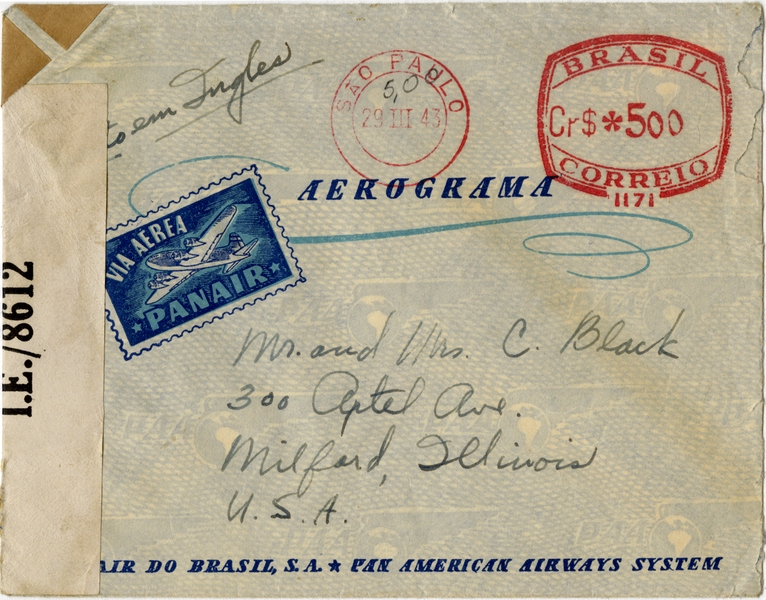 to em Ingles
SÃO PAULO
5,0
29 III 43
BRASIL
Cr$ *500
CORREIO
1171
AEROGRAMA
VIA AÉREA
PANAIR
I.E./8612
Mr. and Mrs. C. Black
300 Axtel Ave.
Milford, Illinois
U.S.A.
AIR DO BRASIL, S.A. ★ PAN AMERICAN AIRWAYS SYSTEM
PAA